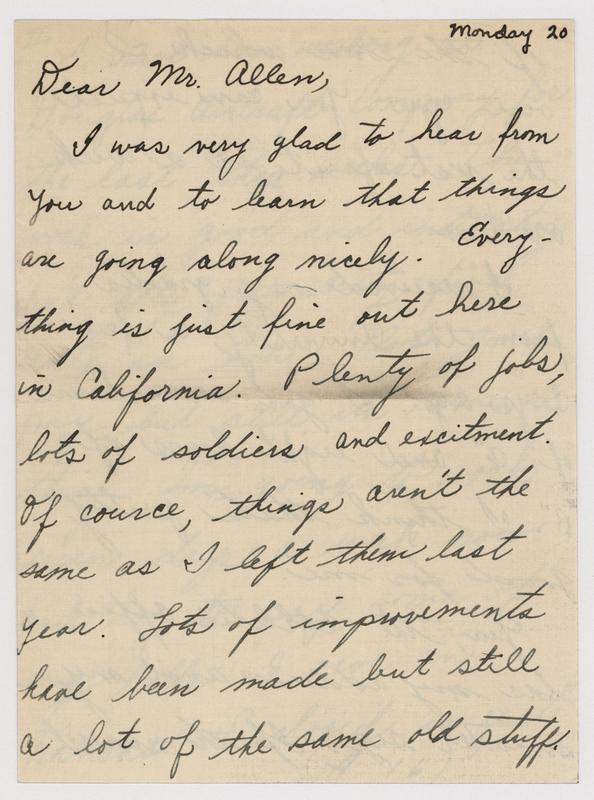 Monday 20
Dear Mr. Allen,
I was very glad to hear from
you and to learn that things
are going along nicely. Every-
thing is just fine out here
in California. Plenty of jobs,
lots of soldiers and excitment.
Of cource, things aren't the
same as I left them last
year. Lots of improvements
have been made but still
a lot of the same old stuff.